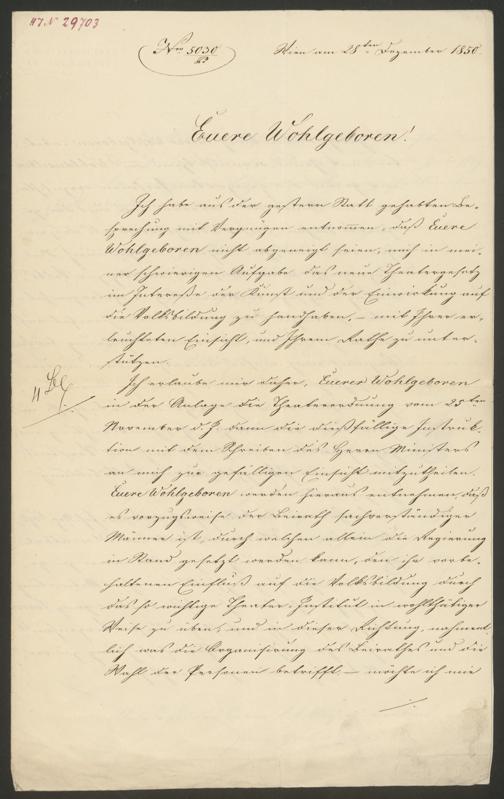 H.I.N. 29703
Nro 5030
Wien am 28ten Dezember 1850.
Euere Wohlgeboren!
Ich habe aus der gestern Statt gehabten Be-
sprechung mit Vergnügen entnommen, daß Euere
Wohlgeboren nicht abgeneigt seien, mich in mei-
ner schwierigen Aufgabe das neue Theatergesetz
im Interesse der Kunst und der Einwirkung auf
die Volksbildung zu handhaben, – mit Ihrer er-
leuchteten Einsicht, und Ihrem Rathe zu unter-
stützen.
Ich erlaube mir daher, Euerer Wohlgeboren
in der Anlage die Theaterordnung vom 25ten
November d. J. dann die dießfällige Instruk-
tion mit dem Schreiben des Herrn Ministers
an mich zur gefälligen Einsicht mitzutheilen.
Euere Wohlgeboren werden hieraus entnehmen, daß
es vorzugsweise der Beirath sachverständiger
Männer ist, durch welchen allein die Regierung
in Stand gesetzt werden kann, den ihr vorbe-
haltenen Einfluß auf die Volksbildung durch
das so wichtige Theater-Institut in wohlthätiger
Weise zu üben, und in dieser Richtung, nahment-
lich was die Organisirung des Beirathes und die
Wahl der Personen betrifft, – möchte ich mir